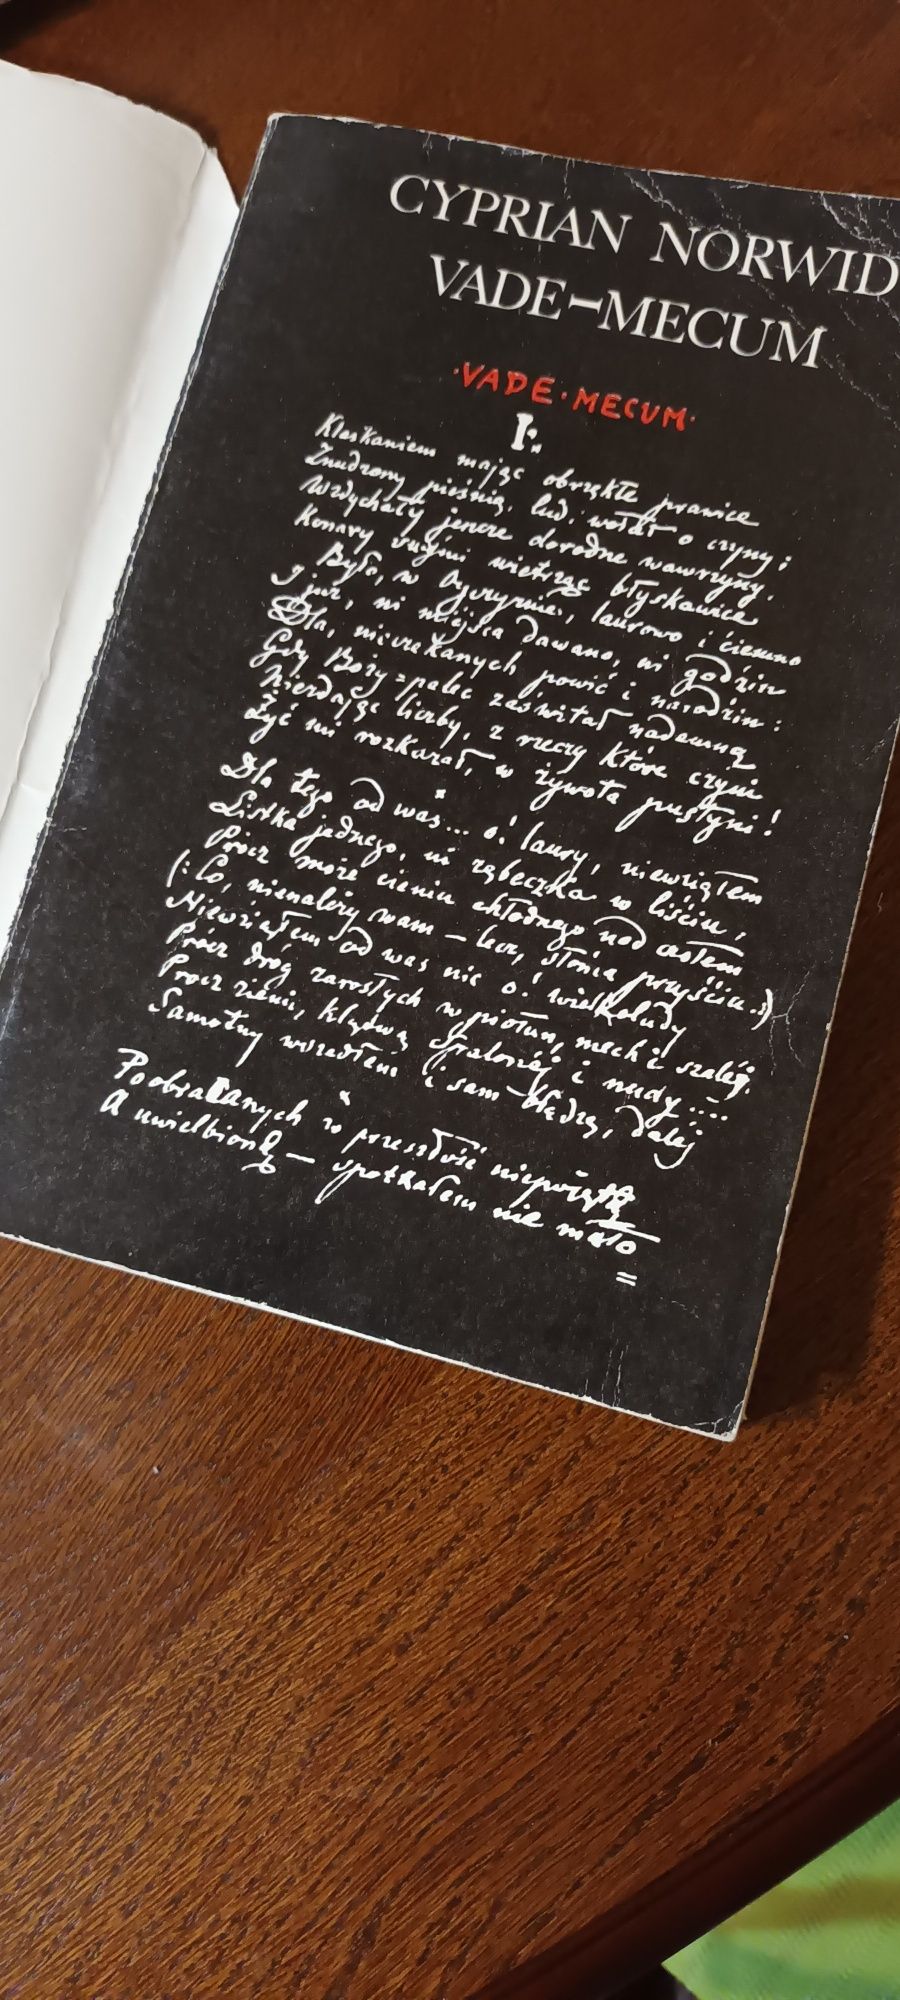 CYPRIAN NORWID
VADE-MECUM
·VADE·MECUM·
I.
Klaskaniem mając obrzękłe prawice
Znudzony pieśnią, lud, wołał o czyny;
Wzdychały jeszcze dorodne wawrzyny,
Konary swymi wietrząc błyskawice
Było, w Ojczyznie, laurowo i ciemno
I już, ni miejsca dawano, ni godzin
Dla, nieczekanych powić i narodzin:
Gdy Boży=palec zaświtał nademną
Nierdając liczby, z rzeczy które czyni
Żyć mi rozkazał, w żywota pustyni!
×
Dla tego od was... o! laury, niewziąłem
Listka jednego, ni ząbeczka w liściu,
Prócz może cieniu chłodnego nad czołem
(: Co, nienależy wam — lecz, słońca przyjściu.:)
Niewziałem od was nic o! wielkoludy
Prócz dróg zarosłych w piołun, mech i szalej,
Prócz ziemi, klątwą spalonéj i nudy....
Samotny wszedłem i sam błądzę, daléj
×
Poobracanych w przeszłość niepojętą
A uwielbioną — spotkałem nie mało
=